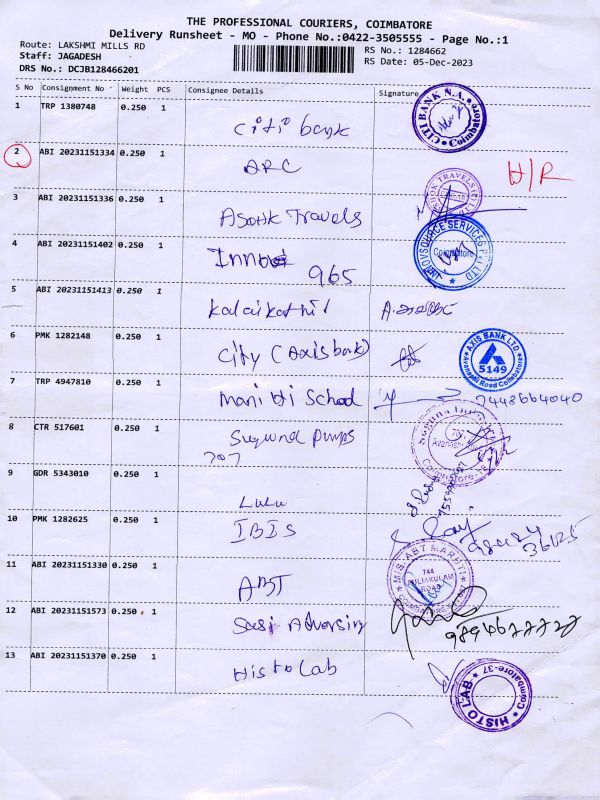 THE PROFESSIONAL COURIERS, COIMBATORE
Delivery Runsheet - MO - Phone No.:0422-3505555 - Page No.:1
Route: LAKSHMI MILLS RD
RS No.: 1284662
Staff: JAGADESH
RS Date: 05-Dec-2023
DRS No.: DCJB128466201
S No Consignment No Weight PCS Consignee Details Signature
1 TRP 1380748 0.250 1 Citi bank
CITI BANK N.A. Coimbatore
2 ABI 20231151334 0.250 1 ARC H/R
3 ABI 20231151336 0.250 1 Asohk Travels
4 ABI 20231151402 0.250 1 965
Coimbatore
5 ABI 20231151413 0.250 1 Kalaikathir
6 PMK 1282148 0.250 1 City (Axis bank)
AXIS BANK LTD 5149 Avanashi Road Coimbatore
7 TRP 4947810 0.250 1 Mani Hi School 7448664040
8 CTR 517601 0.250 1 Suguna Pumps
707
9 GDR 5343010 0.250 1 LuLu
10 PMK 1282625 0.250 1 IBIS
36125
11 ABI 20231151330 0.250 1 ABT
M/S. ABT MARUTI 744 PULIAKULAM ROAD COIMBATORE
12 ABI 20231151573 0.250 1 Sasi Adversing
13 ABI 20231151370 0.250 1 Histo Lab
HISTO LAB Coimbatore-37